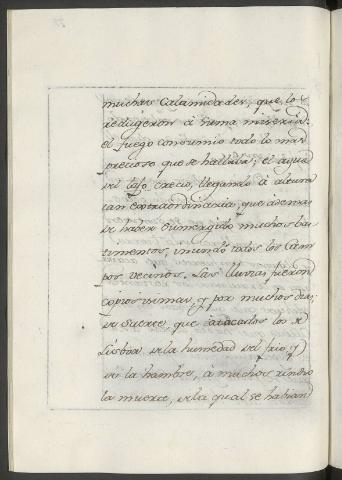 muchas Calamidades, que los
redugeron à suma miseria:
el fuego consumio todo lo mas
precioso que se hallaba; el agua
del tajo crecio, llegando à altura
tan extraordinaria, que ademas
de haber sumergido muchos bas
timentos, inundo todos los Cam
pos vecinos. Las lluvias fueron
copiosisimas, y por muchos dias;
de suerte, que atacados los de
Lisboa de la humedad del frio, y
de la hambre, à muchos rindio
la muerte, de la qual se habian